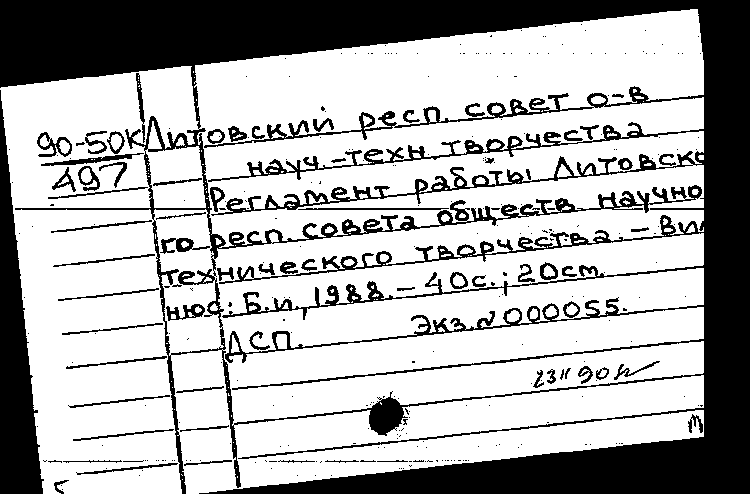 90-50К
497
Литовский респ. совет о-в
науч.-техн. творчества
Регламент работы Литовско
го респ. совета обществ научно
технического творчества. - Вил
нюс: Б.и., 1988. - 40с.; 20см.
ДСП. Экз.N000055.